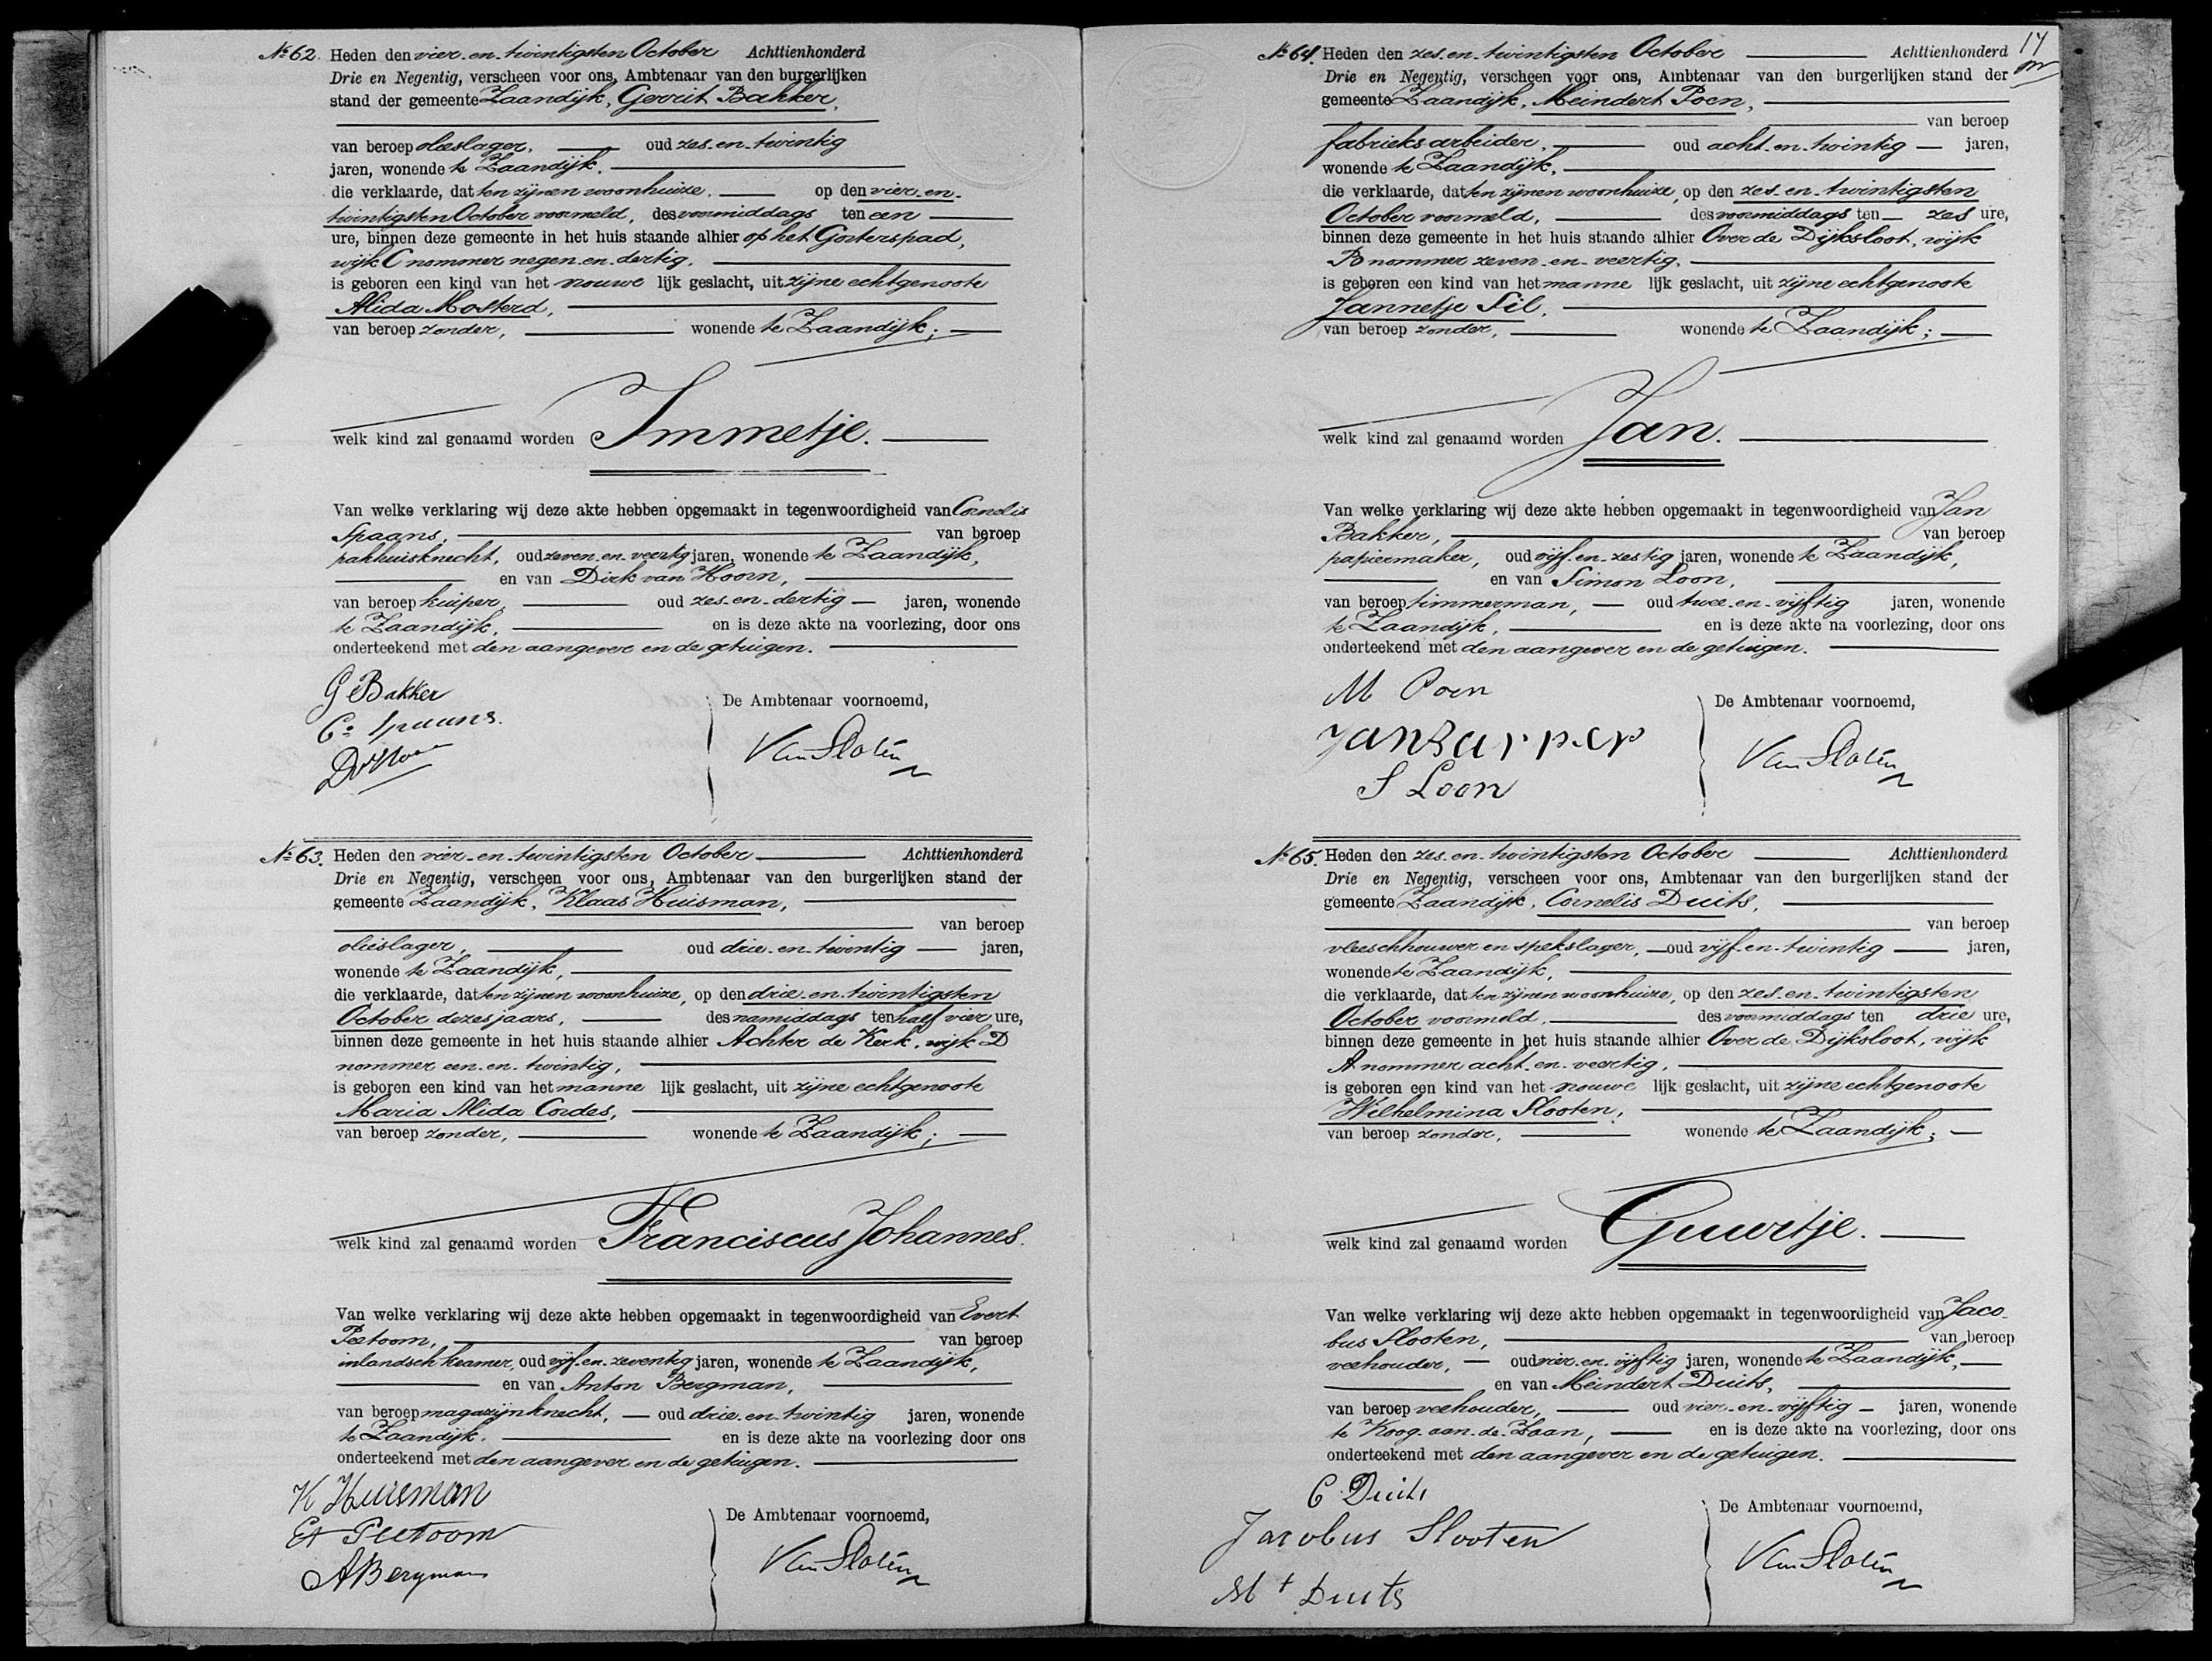 No 62. Heden den vier-en-twintigsten October Achttienhonderd
Drie en Negentig, verscheen voor ons, Ambtenaar van den burgerlijken
stand der gemeente Zaandijk, Gerrit Bakker,
van beroep olieslager, oud zes-en-twintig
jaren, wonende te Zaandijk,
die verklaarde, dat ten zijnen woonhuize, op den vier-en-
twintigsten October voormeld, des voormiddags ten een
ure, binnen deze gemeente in het huis staande alhier op het Gorterspad,
wijk C nommer negen-en-dertig,
is geboren een kind van het vrouwelijk geslacht, uit zijne echtgenoote
Alida Mosterd,
van beroep zonder, wonende te Zaandijk;
welk kind zal genaamd worden Immetje.
Van welke verklaring wij deze akte hebben opgemaakt in tegenwoordigheid van Cornelis
Spaans, van beroep
pakhuisknecht, oud zeven-en-veertig jaren, wonende te Zaandijk,
en van Dirk van Hoorn,
van beroep kuiper, oud zes-en-dertig jaren, wonende
te Zaandijk, en is deze akte na voorlezing, door ons
onderteekend met den aangever en de getuigen.
G Bakker
Cs Spaans.
De Ambtenaar voornoemd,
Van Sloten
No 63. Heden den vier-en-twintigsten October Achttienhonderd
Drie en Negentig, verscheen voor ons, Ambtenaar van den burgerlijken stand der
gemeente Zaandijk, Klaas Huisman,
van beroep
olieslager, oud drie-en-twintig jaren,
wonende te Zaandijk,
die verklaarde, dat ten zijnen woonhuize, op den drie-en-twintigsten
October dezes jaars, des namiddags ten half vier ure,
binnen deze gemeente in het huis staande alhier Achter de Kerk, wijk D
nommer een-en-twintig,
is geboren een kind van het mannelijk geslacht, uit zijne echtgenoote
Maria Alida Cordes,
van beroep zonder, wonende te Zaandijk;
welk kind zal genaamd worden Franciscus Johannes.
Van welke verklaring wij deze akte hebben opgemaakt in tegenwoordigheid van Evert
Peetoom, van beroep
inlandsch kramer, oud vijf-en-zeventig jaren, wonende te Zaandijk,
en van Anton Bergman,
van beroep magazijnknecht, oud drie-en-twintig jaren, wonende
te Zaandijk, en is deze akte na voorlezing door ons
onderteekend met den aangever en de getuigen.
K Huisman
Et Peetoom
A Bergman
De Ambtenaar voornoemd,
Van Sloten
17
No 64. Heden den zes-en-twintigsten October Achttienhonderd
Drie en Negentig, verscheen voor ons, Ambtenaar van den burgerlijken stand der
gemeente Zaandijk, Meindert Poen,
van beroep
fabrieksarbeider, oud acht-en-twintig jaren,
wonende te Zaandijk,
die verklaarde, dat ten zijnen woonhuize, op den zes-en-twintigsten
October voormeld, des voormiddags ten zes ure,
binnen deze gemeente in het huis staande alhier Over de Dijksloot, wijk
B nommer zeven-en-veertig,
is geboren een kind van het mannelijk geslacht, uit zijne echtgenoote
Jannetje Sil,
van beroep zonder, wonende te Zaandijk;
welk kind zal genaamd worden Jan.
Van welke verklaring wij deze akte hebben opgemaakt in tegenwoordigheid van Jan
Bakker, van beroep
papiermaker, oud vijf-en-zestig jaren, wonende te Zaandijk,
en van Simon Loon,
van beroep timmerman, oud twee-en-vijftig jaren, wonende
te Zaandijk, en is deze akte na voorlezing, door ons
onderteekend met den aangever en de getuigen.
M Poen
Jan Bakker
S Loon
De Ambtenaar voornoemd,
Van Sloten
No 65. Heden den zes-en-twintigsten October Achttienhonderd
Drie en Negentig, verscheen voor ons, Ambtenaar van den burgerlijken stand der
gemeente Zaandijk, Cornelis Duits,
van beroep
vleeschhouwer en spekslager, oud vijf-en-twintig jaren,
wonende te Zaandijk,
die verklaarde, dat ten zijnen woonhuize, op den zes-en-twintigsten
October voormeld, des voormiddags ten drie ure,
binnen deze gemeente in het huis staande alhier Over de Dijksloot, wijk
A nommer acht-en-veertig,
is geboren een kind van het vrouwelijk geslacht, uit zijne echtgenoote
Wilhelmina Slooten,
van beroep zonder, wonende te Zaandijk;
welk kind zal genaamd worden Guurtje.
Van welke verklaring wij deze akte hebben opgemaakt in tegenwoordigheid van Jaco-
bus Slooten, van beroep
veehouder, oud vier-en-vijftig jaren, wonende te Zaandijk,
en van Meindert Duits,
van beroep veehouder, oud vier-en-vijftig jaren, wonende
te Koog-aan-de-Zaan, en is deze akte na voorlezing, door ons
onderteekend met den aangever en de getuigen.
C Duits
Jacobus Slooten
Mt Duits
De Ambtenaar voornoemd,
Van Sloten